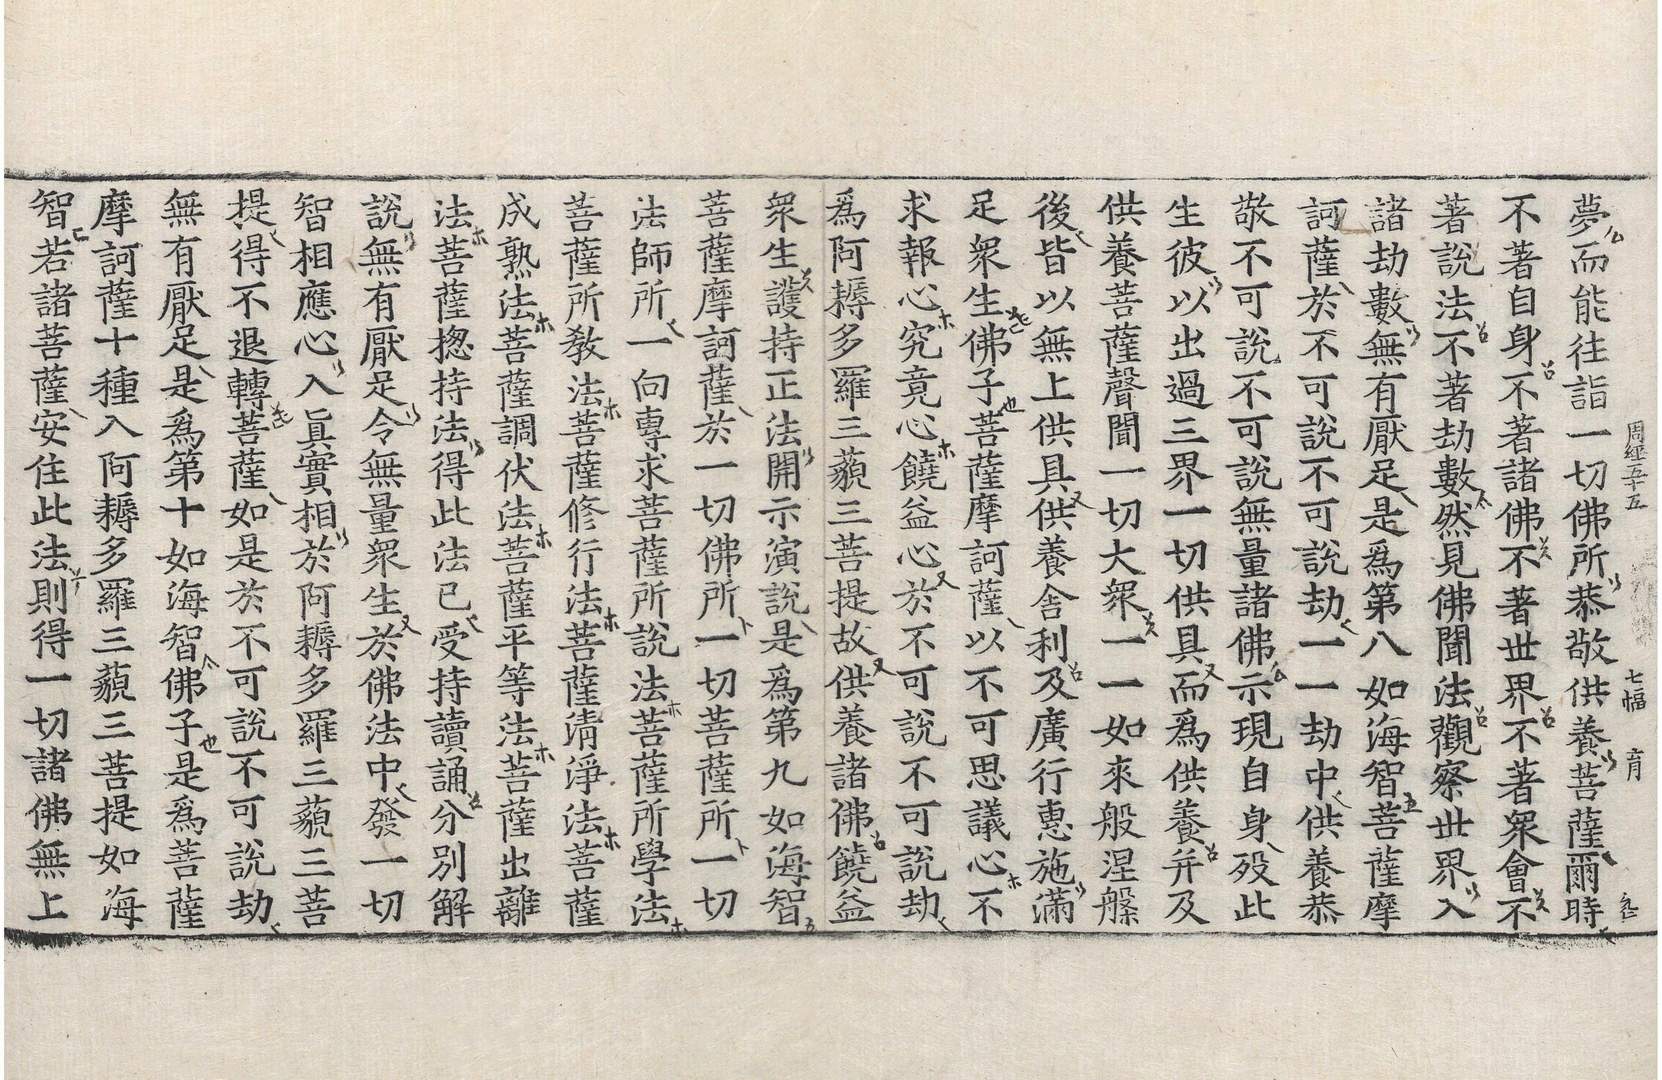 周經五十五 七幅 育
夢而能往詣一切佛所恭敬供養菩薩爾時
不著自身不著諸佛不著世界不著衆會不
著說法不著劫數然見佛聞法觀察世界入
諸劫數無有厭足是爲第八如海智菩薩摩
訶薩於不可說不可說劫一一劫中供養恭
敬不可說不可說無量諸佛示現自身歿此
生彼以出過三界一切供具而爲供養幷及
供養菩薩聲聞一切大衆一一如來般涅槃
後皆以無上供具供養舍利及廣行惠施滿
足衆生佛子菩薩摩訶薩以不可思議心不
求報心究竟心饒益心於不可說不可說劫
爲阿耨多羅三藐三菩提故供養諸佛饒益
衆生護持正法開示演說是爲第九如海智
菩薩摩訶薩於一切佛所一切菩薩所一切
法師所一向專求菩薩所說法菩薩所學法
菩薩所敎法菩薩修行法菩薩淸淨法菩薩
成熟法菩薩調伏法菩薩平等法菩薩出離
法菩薩摠持法得此法已受持讀誦分別解
說無有厭足令無量衆生於佛法中發一切
智相應心入眞實相於阿耨多羅三藐三菩
提得不退轉菩薩如是於不可說不可說劫
無有厭足是爲第十如海智佛子是爲菩薩
摩訶薩十種入阿耨多羅三藐三菩提如海
智若諸菩薩安住此法則得一切諸佛無上